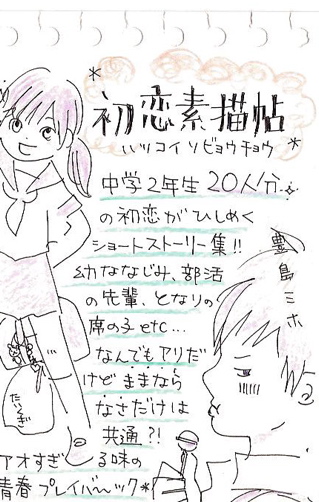 初恋素描帖
ハツコイソビョウチョウ
中学2年生 20人分
の初恋がひしめく
ショートストーリー集!!
幼ななじみ、部活
の先輩、となりの
席の子 etc...
なんでもアリだ
けど ままなら
なさだけは
共通?!
アオすぎる味の
青春プレイバック*
豊島ミホ
たいくぎ